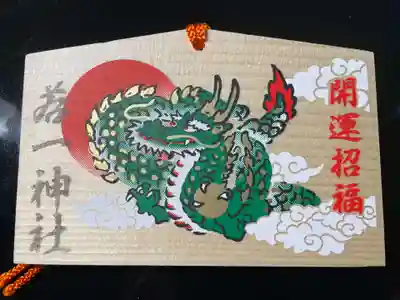 開運招福
若一神社